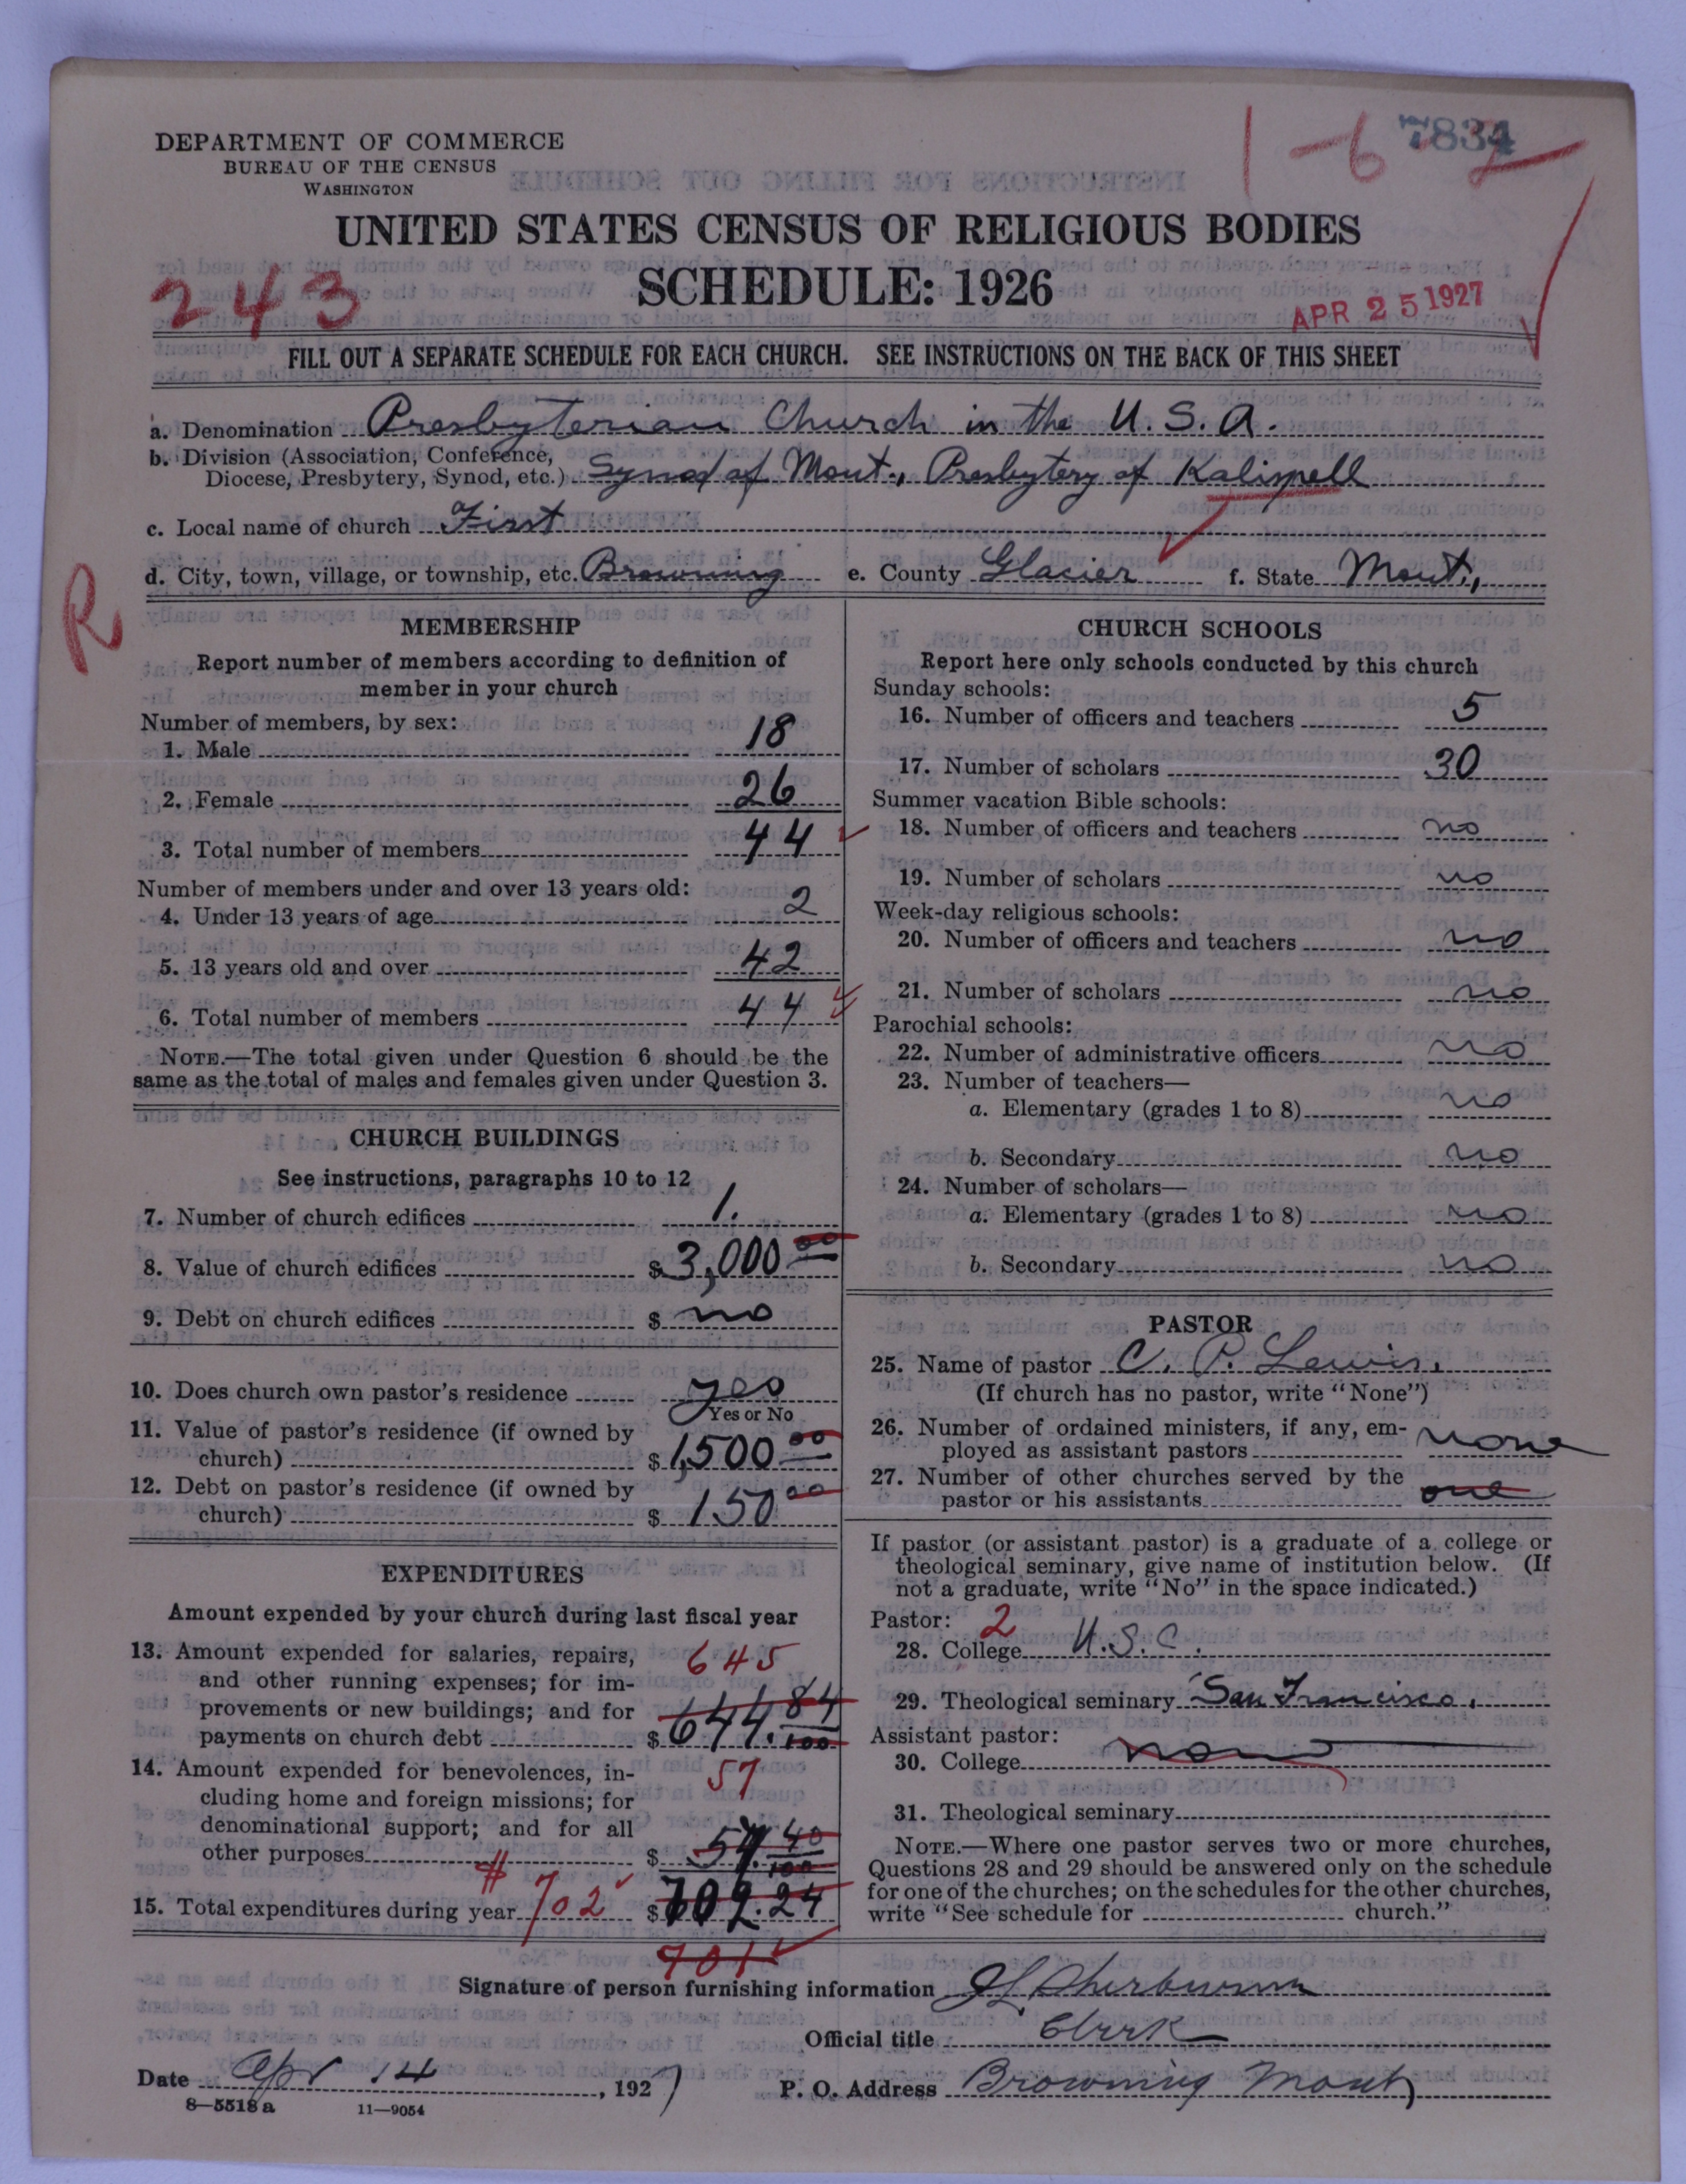 DEPARTMENT OF COMMERCE
BUREAU OF THE CENSUS
WASHINGTON
1-6 7834
UNITED STATES CENSUS OF RELIGIOUS BODIES
243
SCHEDULE: 1926
APR 25 1927
FILL OUT A SEPARATE SCHEDULE FOR EACH CHURCH. SEE INSTRUCTIONS ON THE BACK OF THIS SHEET
a. Denomination Presbyterian Church in the U.S.A.
b. Division (Association, Conference,
Diocese, Presbytery, Synod, etc.) Synod of Mont., Presbytery of Kalispell
c. Local name of church First
R
d. City, town, village, or township, etc. Browning e. County Glacier f. State Mont.,
MEMBERSHIP
Report number of members according to definition of
member in your church
Number of members, by sex:
1. Male 18
2. Female 26
3. Total number of members 44
Number of members under and over 13 years old:
4. Under 13 years of age 2
5. 13 years old and over 42
6. Total number of members 44
NOTE.—The total given under Question 6 should be the
same as the total of males and females given under Question 3.
CHURCH BUILDINGS
See instructions, paragraphs 10 to 12
7. Number of church edifices 1.
8. Value of church edifices $ 3,000 00
9. Debt on church edifices $ no
10. Does church own pastor's residence yes
Yes or No
11. Value of pastor's residence (if owned by
church) $ 1,500 00
12. Debt on pastor's residence (if owned by
church) $ 150 00
EXPENDITURES
Amount expended by your church during last fiscal year
13. Amount expended for salaries, repairs, 645
and other running expenses; for im-
provements or new buildings; and for
payments on church debt $ 644. 84/100
14. Amount expended for benevolences, in- 57
cluding home and foreign missions; for
denominational support; and for all
other purposes $ 57. 40/100
15. Total expenditures during year $702 $ 702.24
701
CHURCH SCHOOLS
Report here only schools conducted by this church
Sunday schools:
16. Number of officers and teachers 5
17. Number of scholars 30
Summer vacation Bible schools:
18. Number of officers and teachers no
19. Number of scholars no
Week-day religious schools:
20. Number of officers and teachers no
21. Number of scholars no
Parochial schools:
22. Number of administrative officers no
23. Number of teachers—
a. Elementary (grades 1 to 8) no
b. Secondary no
24. Number of scholars—
a. Elementary (grades 1 to 8) no
b. Secondary no
PASTOR
25. Name of pastor C. P. Lewis.
(If church has no pastor, write "None")
26. Number of ordained ministers, if any, em-
ployed as assistant pastors none
27. Number of other churches served by the
pastor or his assistants one
If pastor (or assistant pastor) is a graduate of a college or
theological seminary, give name of institution below. (If
not a graduate, write "No" in the space indicated.)
Pastor: 2
28. College U.S.C.
29. Theological seminary San Francisco.
Assistant pastor:
30. College none
31. Theological seminary
NOTE.—Where one pastor serves two or more churches,
Questions 28 and 29 should be answered only on the schedule
for one of the churches; on the schedules for the other churches,
write "See schedule for church."
Signature of person furnishing information J L Sherburne
Official title Clerk
Date Apr 14, 1927 P. O. Address Browning Mont
8—5518 a 11—9054